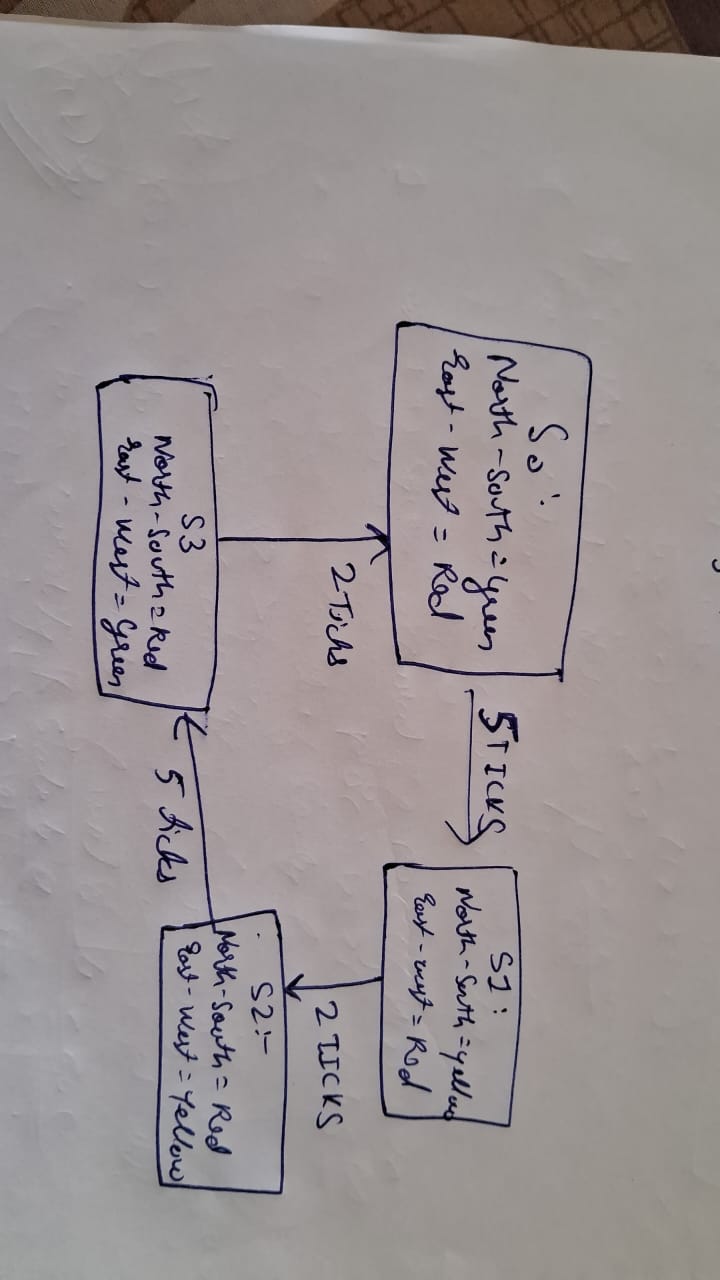 S0:
North-South=Green
East-West = Red
5 TICKS
S1:
North-South=yellow
East-west = Red
2 TICKS
S2:-
North-South = Red
East-West = Yellow
5 ticks
S3
North-South=Red
East-West = Green
2 Ticks